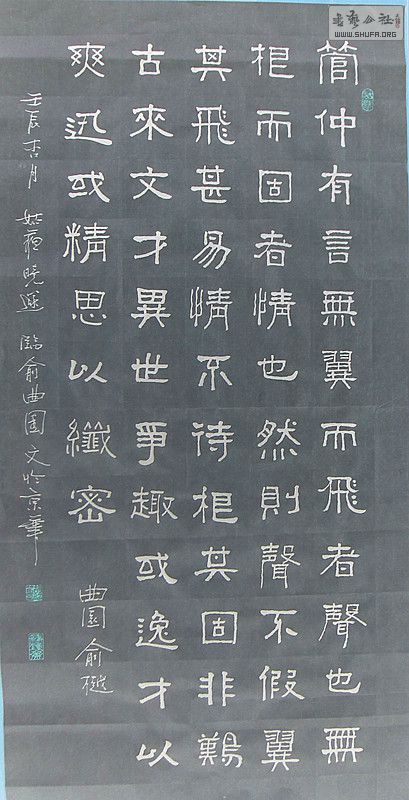 書藝公社
WWW.SHUFA.ORG
管仲有言無翼而飛者聲也無
根而固者情也然則聲不假翼
其飛甚易情不待根其固非難
古來文才異世爭趣或逸才以
爽迅或精思以纖密
曲園俞樾
壬辰杏月 姑蘇曉 臨俞曲園文於京華